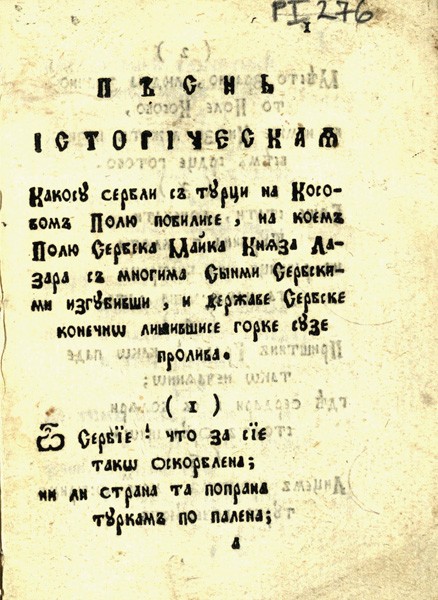 РІ 276
1
ПѢСНЬ
ІСТОРІЧЕСКАѦ
Какосу сербли съ турци на Косо-
вомъ Полю побилисе , на коемъ
Полю Сербска Майка Княза Ла-
зара съ многима Сынми Сербски-
ми изгубивши , и державе Сербске
конечнѡ лишившисе горке сузе
пролива.
( 1 )
Ѿ Сербїе ! что за сїе
такѡ оскорблена;
ни ли страна та попрана
туркамъ по палена;
А